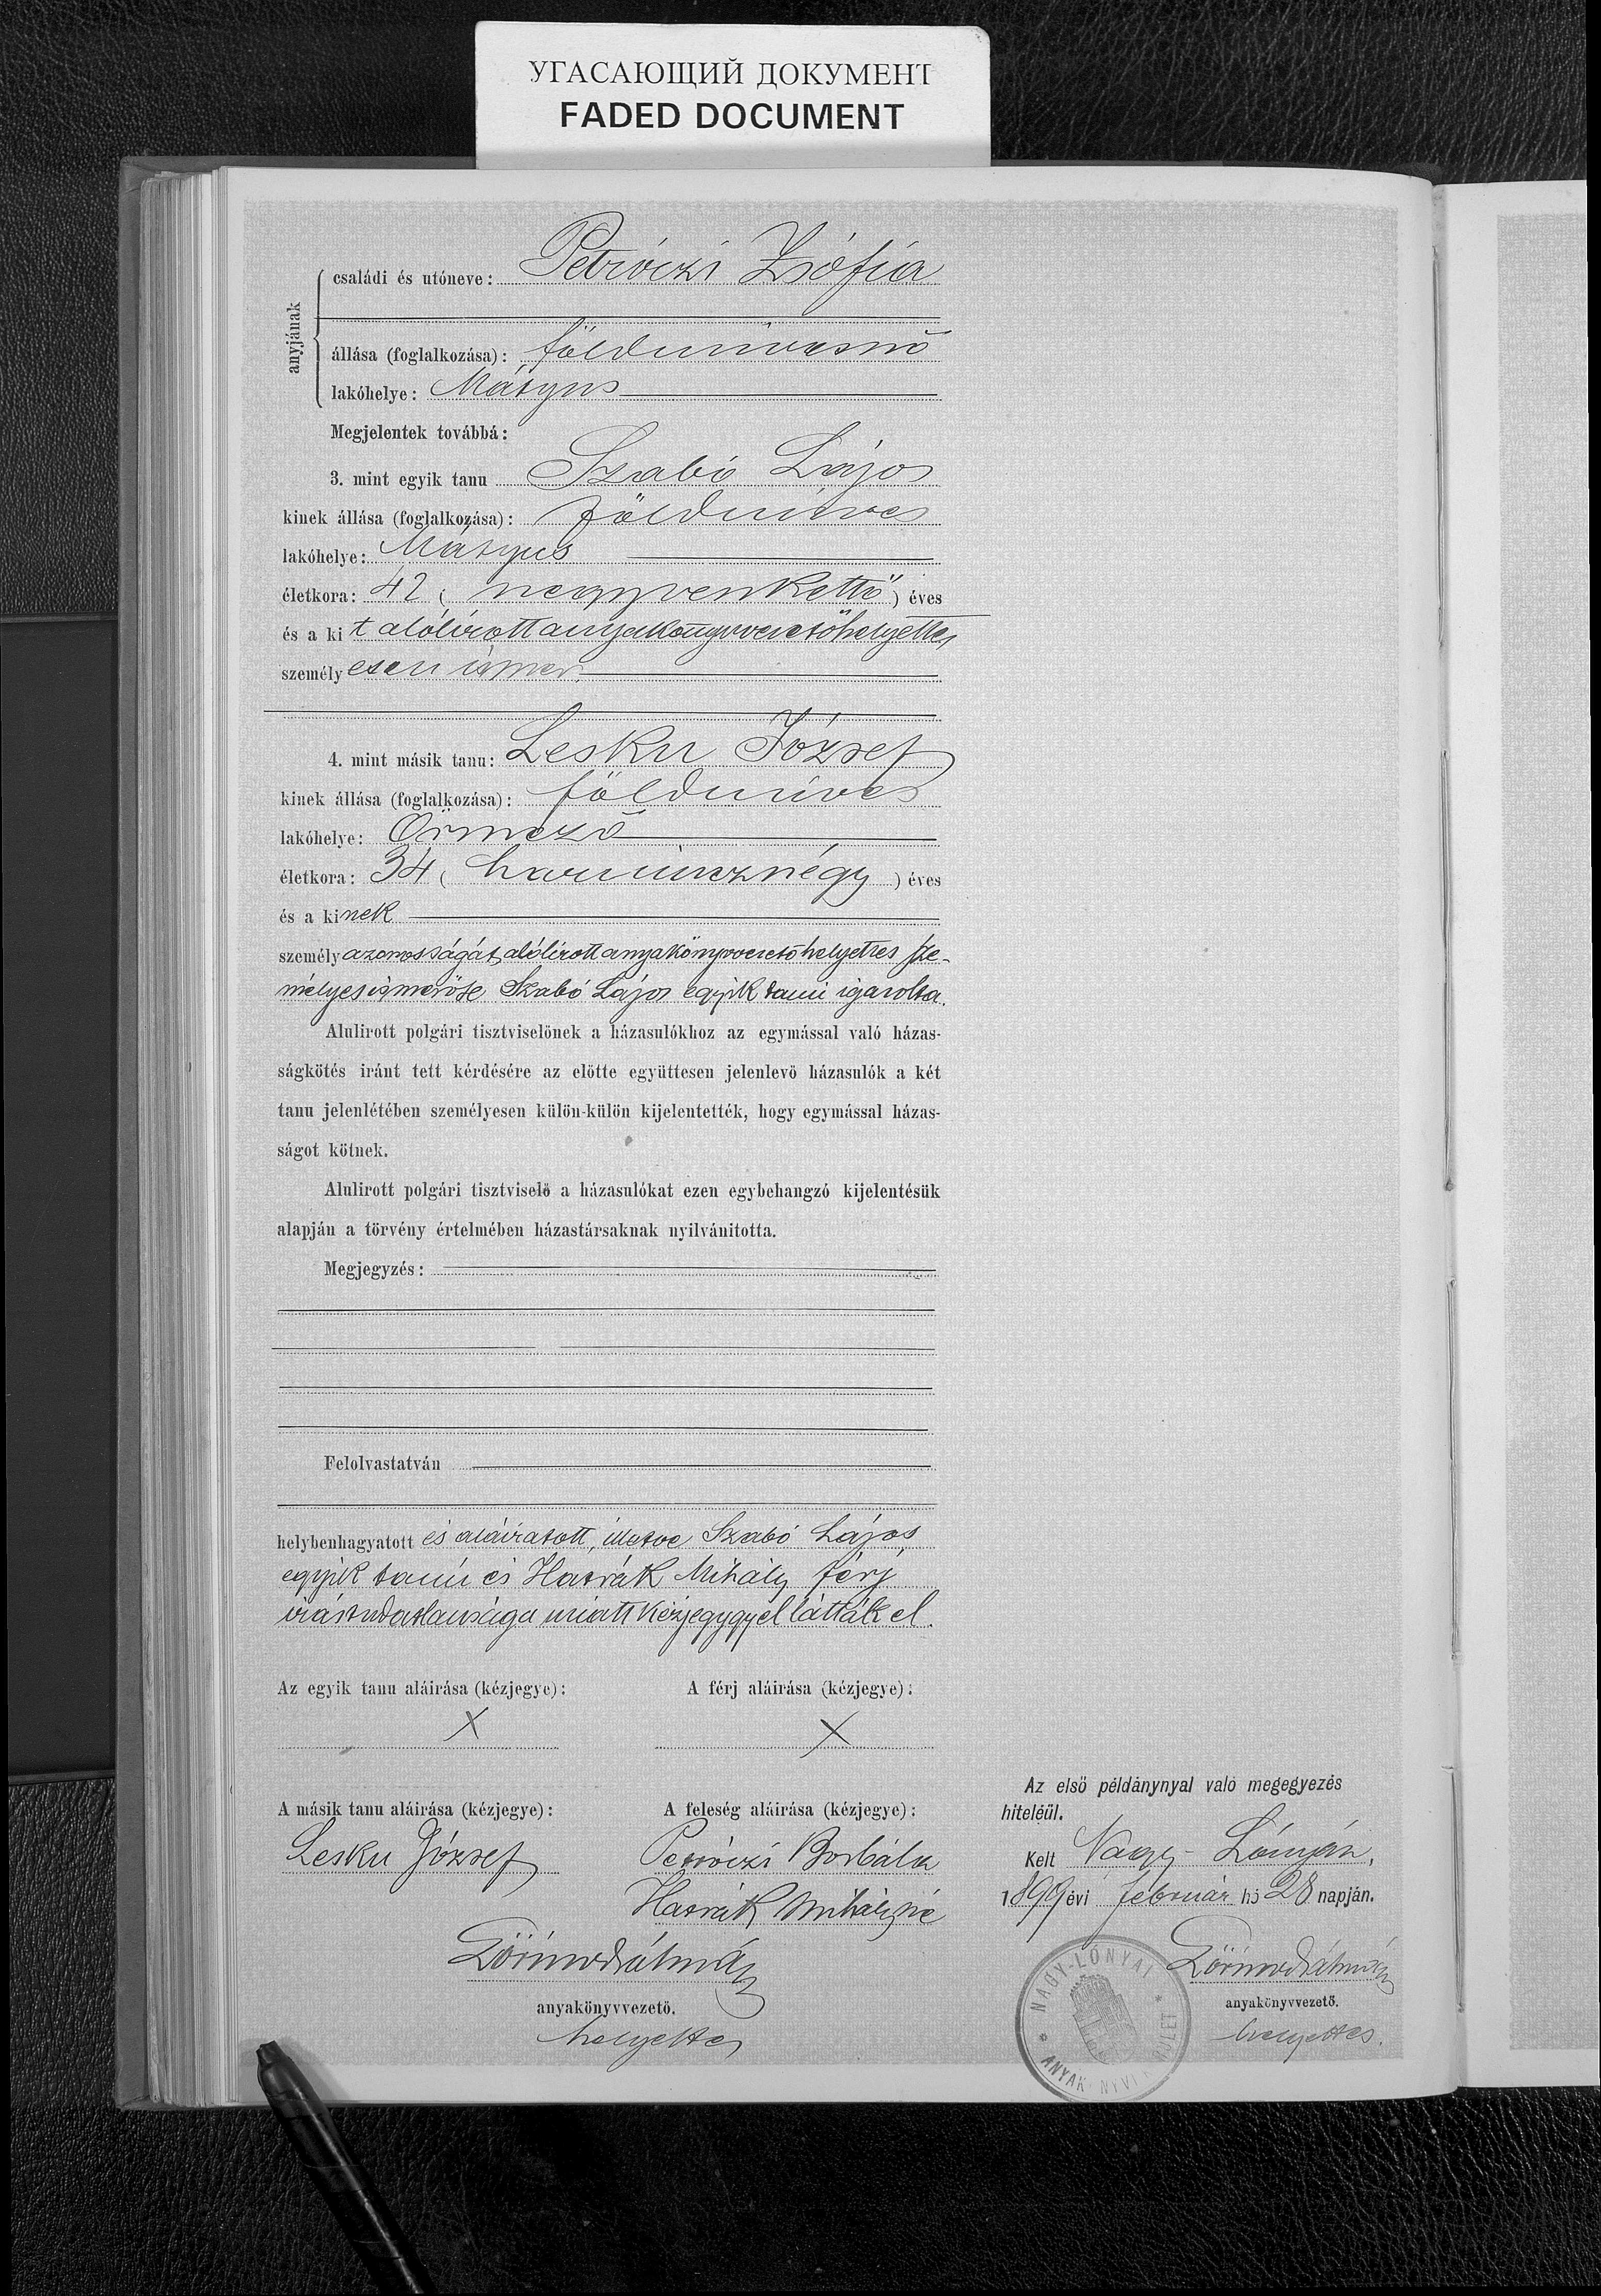 УГАСАЮЩИЙ ДОКУМЕНТ
FADED DOCUMENT
anyjának
családi és utóneve: Petróczi Zsófia
állása (foglalkozása): földmívesnő
lakóhelye: Mátyus
Megjelentek továbbá:
3. mint egyik tanu Szabó Lajos
kinek állása (foglalkozása): földmíves
lakóhelye: Mátyus
életkora: 42 (negyvenkettő) éves
és a kit alólírott anyakönyvvezetőhelyettes
személyesen ismer.
4. mint másik tanu: Lesku József
kinek állása (foglalkozása): földmíves
lakóhelye: Őrmező
életkora: 34 (harmincznégy) éves
és a kinek
személyazonosságát alólírott anyakönyvvezetőhelyettes sze-
mélyes ismerőse Szabó Lajos egyik tanú igazolta.
Alulirott polgári tisztviselönek a házasulókhoz az egymással való házas-
ságkötés iránt tett kérdésére az elötte együttesen jelenlevö házasulók a két
tanu jelenlétében személyesen külön-külön kijelentették, hogy egymással házas-
ságot kötnek.
Alulirott polgári tisztviselő a házasulókat ezen egybehangzó kijelentésük
alapján a törvény értelmében házastársaknak nyilvánitotta.
Megjegyzés:
Felolvastatván
helybenhagyatott és aláiratott, illetve Szabó Lajos,
egyik tanú és Hatrák Mihály férj
irástudatlansága miatt kézjegygyel látták el.
Az egyik tanu aláirása (kézjegye): A férj aláirása (kézjegye):
X X
A másik tanu aláirása (kézjegye): A feleség aláirása (kézjegye):
Lesku József Petróczi Borbála
Hatrák Mihályné
anyakönyvvezetö.
helyettes
Az elsö példánynyal való megegyezés
hiteléül.
Kelt Nagy-Lónyán,
1899 évi február hó 28 napján.
anyakönyvvezetö.
helyettes.
NAGY-LÓNYAI